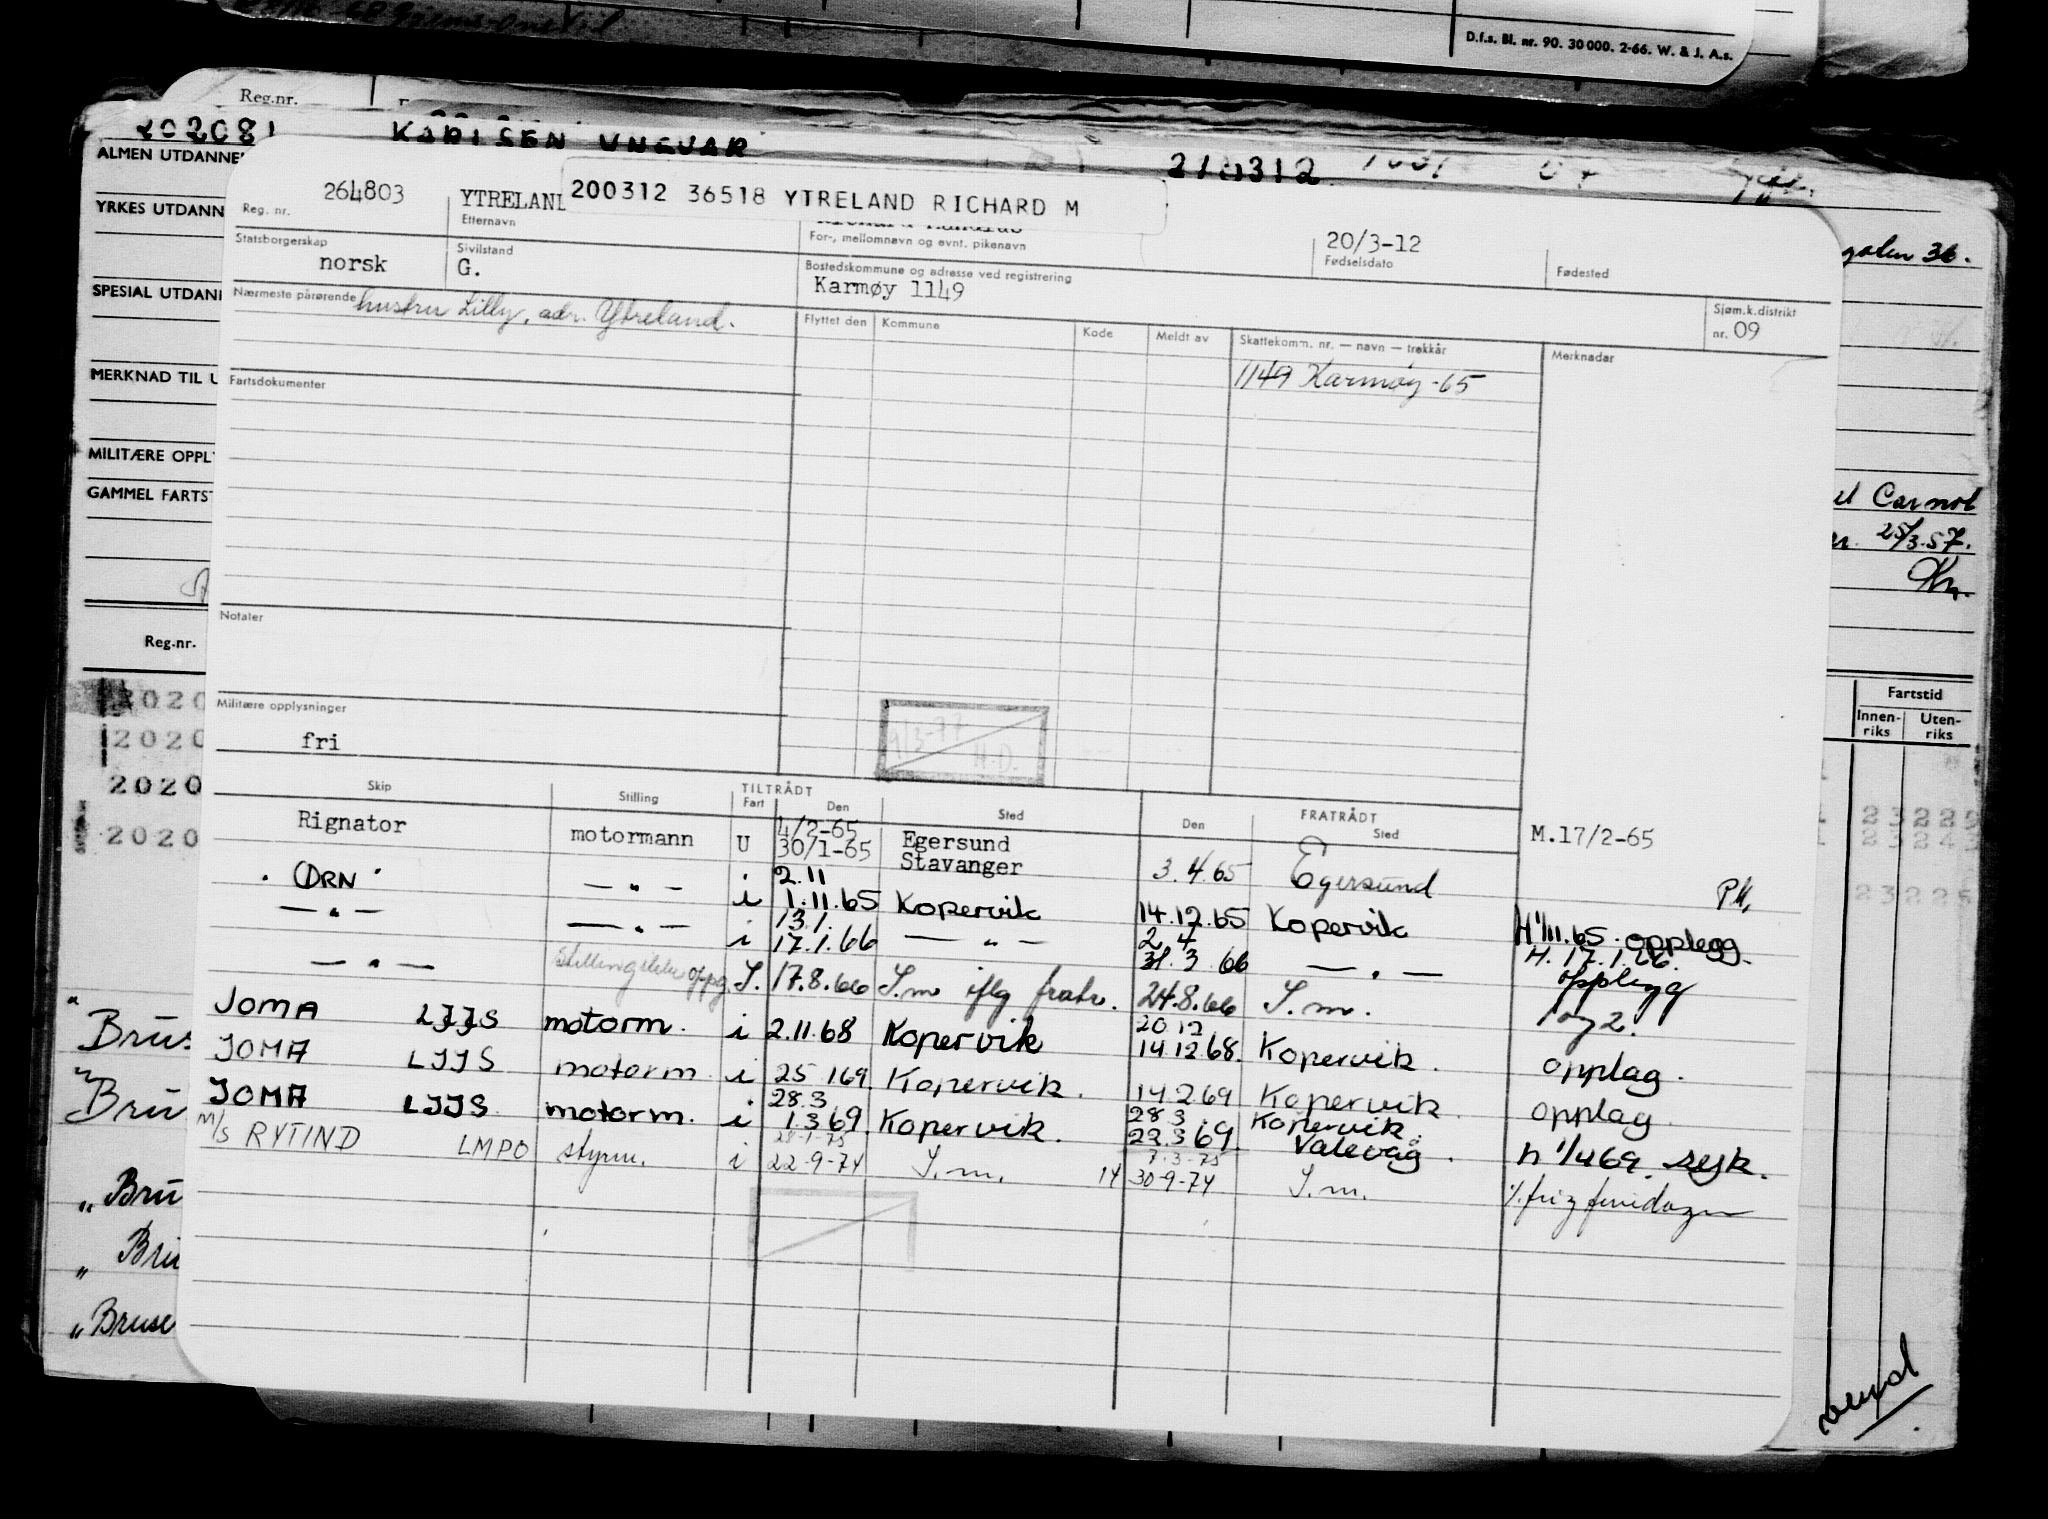 D.f.s. Bl. nr. 90. 30 000. 2-66. W. & J. A.s.
Reg.nr.
202081 KARLSEN YNGVAR 210312
ALMEN UTDANNE
264803 YTRELAND 200312 36518 YTRELAND RICHARD M
Reg. nr. Etternavn For-, mellomnavn og evnt. pikenavn 20/3-12 Fødselsdato Fødested
YRKES UTDANN
Statsborgerskap norsk Sivilstand G. Bostedskommune og adresse ved registrering Karmøy 1149
SPESIAL UTDANN
Nærmeste pårørende hustru Lilly, adr. Ytreland.
Flyttet den Kommune Kode Meldt av Skattekomm. nr. — navn — trekkår Merknader Sjøm.k.distrikt nr. 09
1149 Karmøy -65
MERKNAD TIL U
Fartsdokumenter
MILITÆRE OPPLY
GAMMEL FARTST
36.
Carnot
25/3.57.
Notater
Reg.nr.
Fartstid
Innen-riks Uten-riks
2020
2020
2020
2020
Militære opplysninger
fri
H.D.
Skip Stilling TILTRÅDT Fart Den Sted FRATRÅDT Den Sted
Rignator motormann U 4/2-65 30/1-65 Egersund Stavanger 3.4.65 Egersund M.17/2-65
ØRN — " — i 2.11 1.11.65 Kopervik 14.12.65 Kopervik H 1/11.65 opplegg.
— " — — " — i 13.1. 17.1.66 — " — 2.4 31.3.66 — " — H. 17.1.66. opplegg
— " — S. 17.8.66 S.m iflg fratr. 24.8.66 S.m. 1 og 2.
JOMA LJJS motorm. i 2.11.68 Kopervik 20.12 14.12.68. Kopervik. opplag.
JOMA LJJS motorm i 25 1 69. Kopervik. 14.2 69 Kopervik. opplag.
JOMA LJJS motorm. i 28.3 1.3 69. Kopervik. 28.3 22.3 69. Kopervik. Valevåg. h 1/4 69. syk.
M/S RYTIND LMPO styrm. i 28-1-75 22-9-74 S.m. 14 7-3-75 30-9-74 S.m.
Brus
Bru
" Bru
" Bru
" Bruse